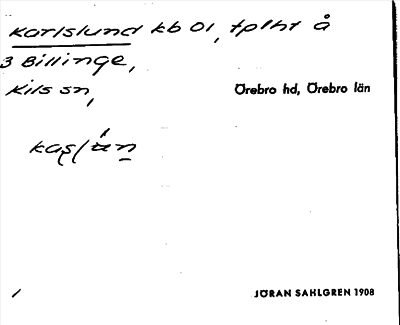 Karlslund kb 01, tplht å
3 Billinge,
Kils sn,
Örebro hd, Örebro län
/
JÖRAN SAHLGREN 1908